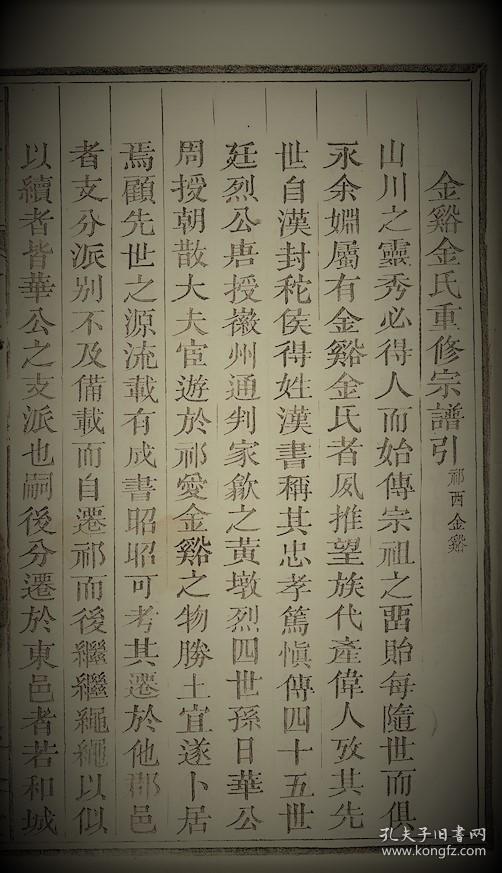 金谿金氏重修宗譜引 祁西金谿
山川之靈秀必得人而始傳宗祖之畱貽每隨世而俱
永余婣屬有金谿金氏者夙推望族代產偉人攷其先
世自漢封秺侯得姓漢書稱其忠孝篤愼傳四十五世
廷烈公唐授徽州通判家歙之黃墩烈四世孫日華公
周授朝散大夫宦遊於祁愛金谿之物勝土宜遂卜居
焉顧先世之源流載有成書昭昭可考其遷於他郡邑
者支分派別不及備載而自遷祁而後繼繼繩繩以似
以續者皆華公之支派也嗣後分遷於東邑者若和城
孔夫子旧书网
www.kongfz.com